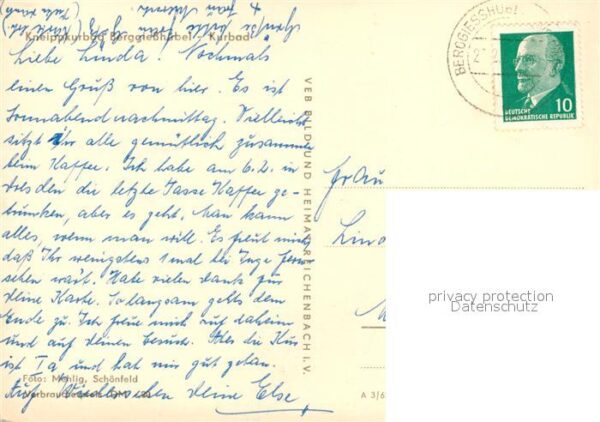 Kneippkurbad Berggießhübel - Kurbad
Liebe Linda! Nochmals
einen Gruß von hier. Es ist
Sonnabendnachmittag. Vielleicht
sitzt Ihr alle gemütlich zusammen
beim Kaffee. Ich habe am 6.2. in
Dresden die letzte Tasse Kaffee ge-
trunken, aber es geht. Man kann
alles, wenn man will. Es freut mich
daß Ihr wenigstens 1 mal bei Inge fern-
sehen wart. Habe vielen Dank für
deine Karte. So langsam gehts dem
Ende zu. Ich freue mich auf daheim
und auf deinen Besuch. Aber die Kur
ist Ia und hat mir gut getan.
Auf Wiedersehen deine Else
Foto: Mehlig, Schönfeld
Verbraucherpreis
A 3/6
VEB BILD UND HEIMAT REICHENBACH I. V.
BERGGIESSHÜBEL
10
DEUTSCHE
DEMOKRATISCHE REPUBLIK
Frau
privacy protection
Datenschutz